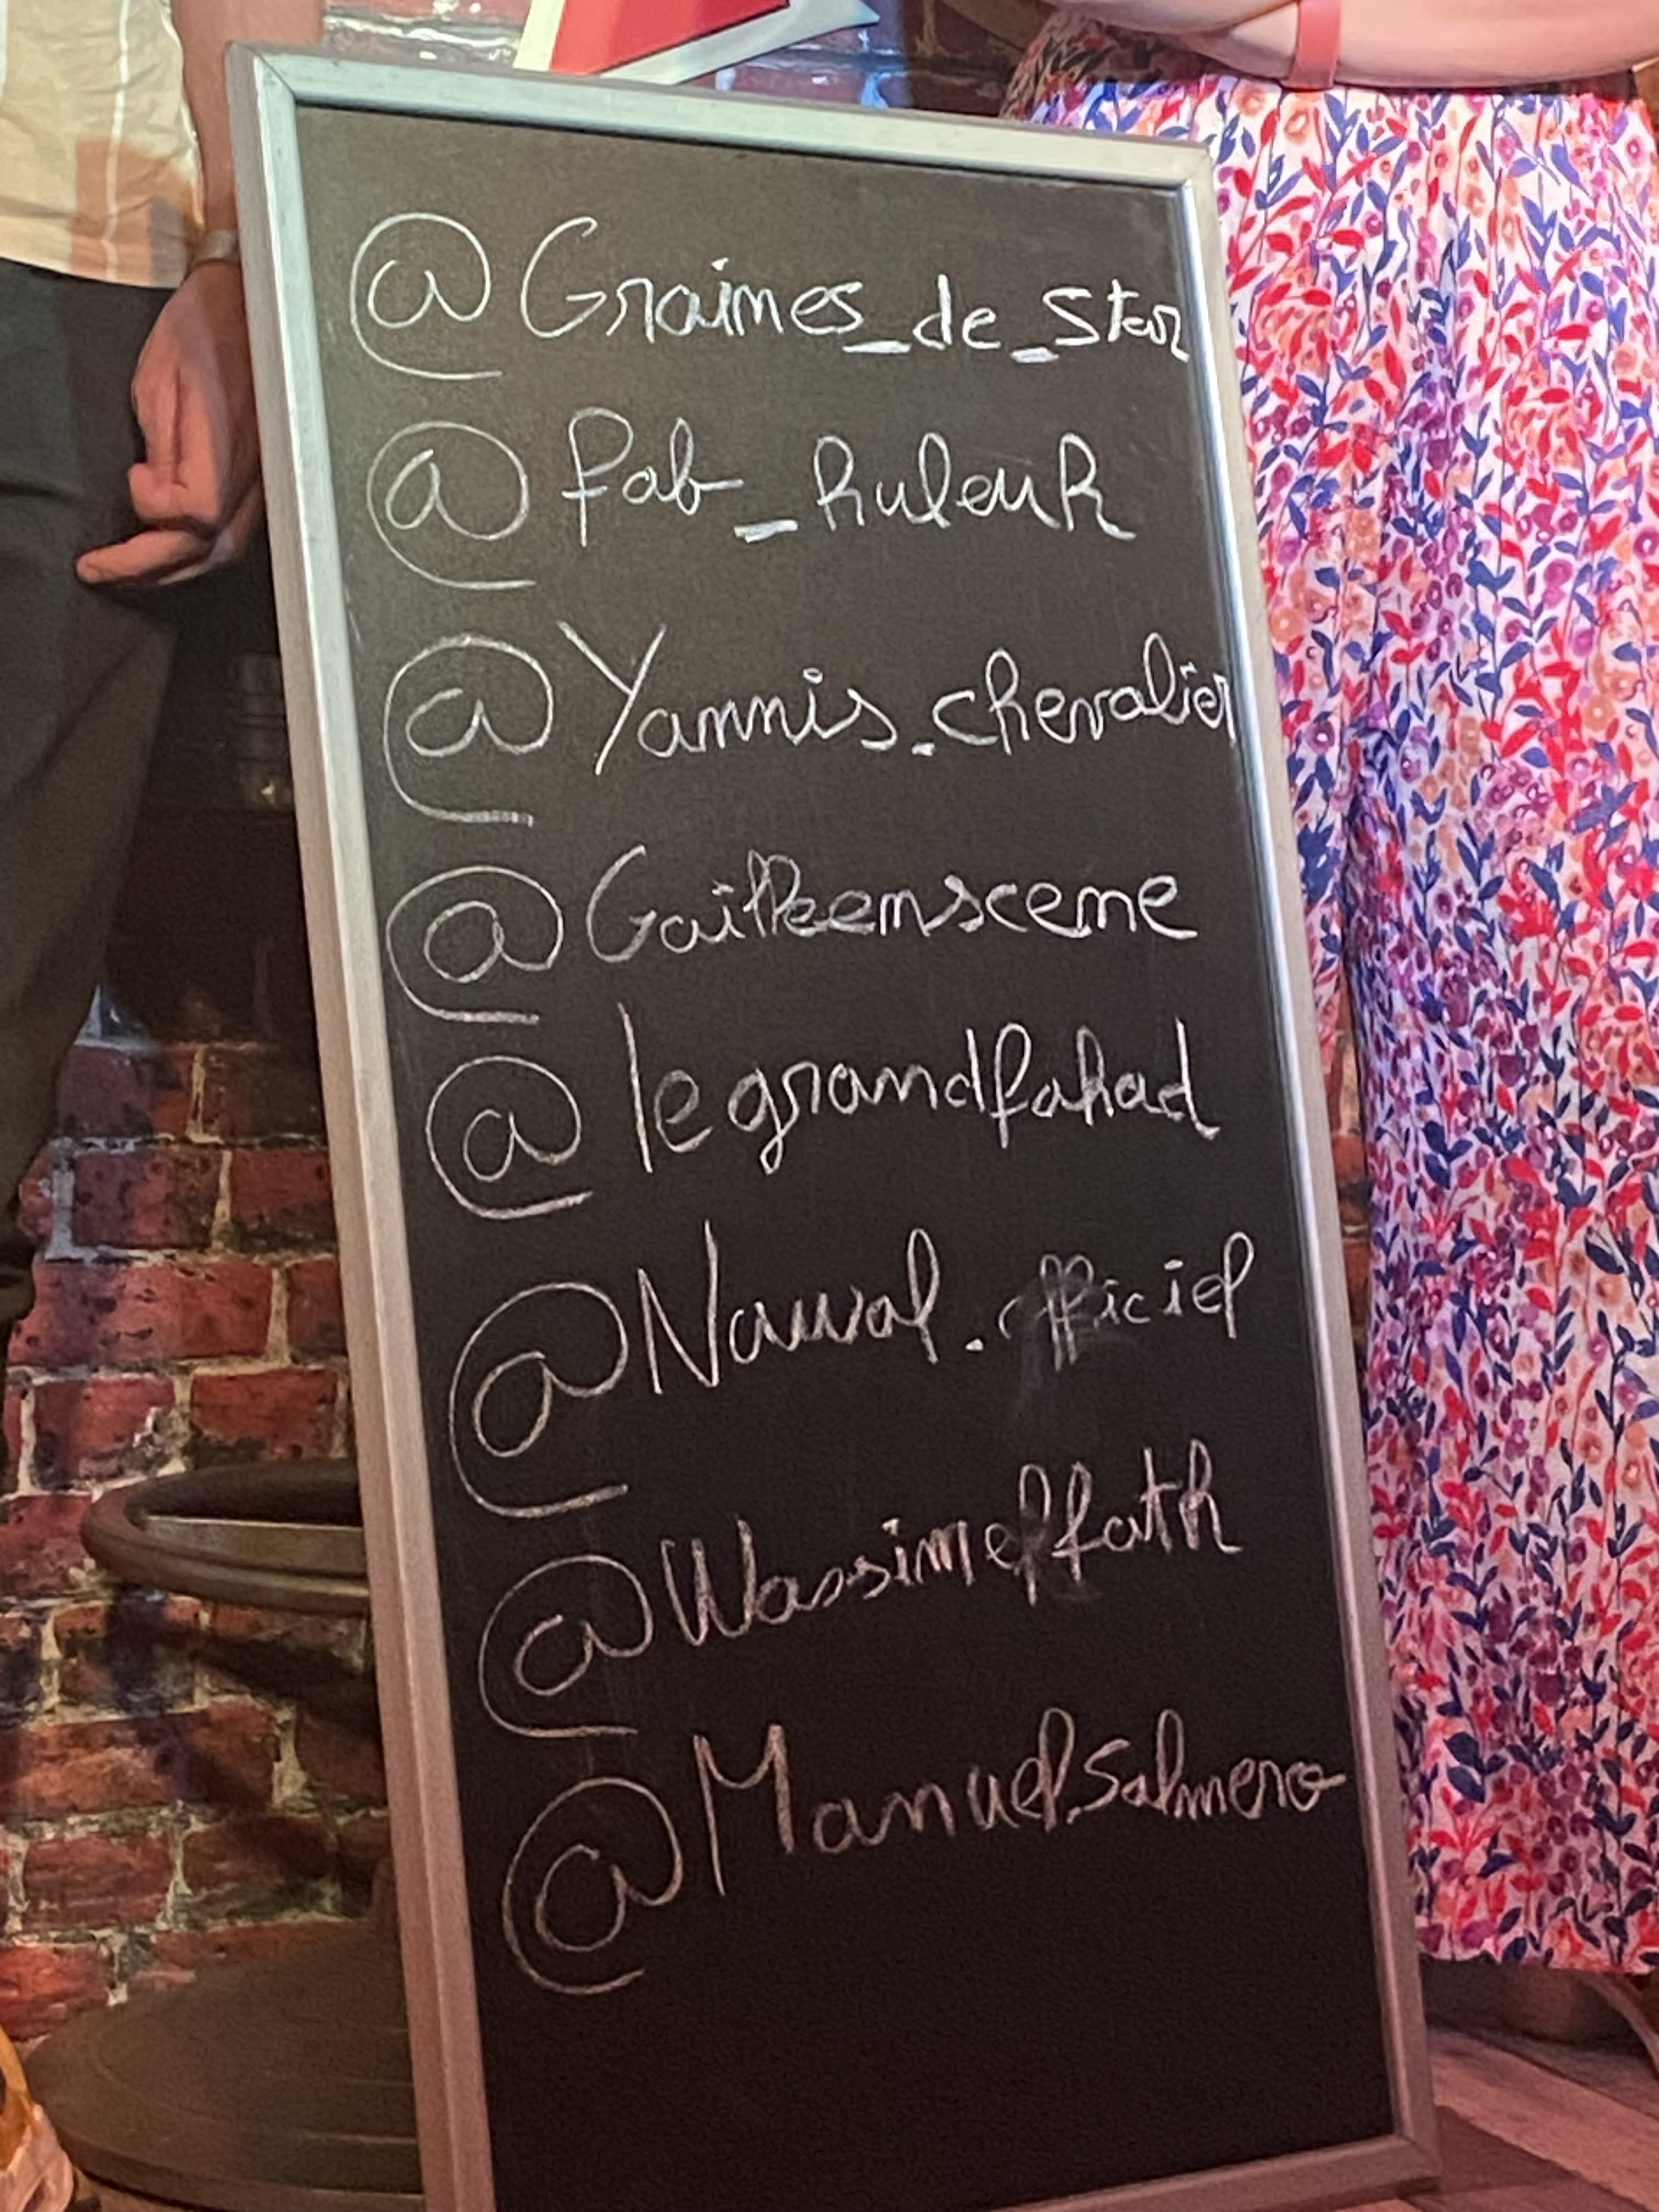 @Graines_de_Star
@fab_huleuh
@Yannis.chevalier
@Gaitkeenscene
@legrandfahad
@Nawal.officiel
@Wassimelfath
@Manuel.Salmero